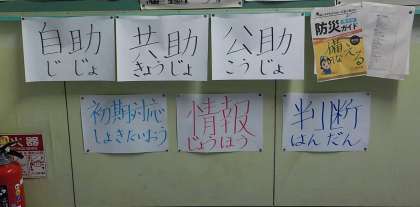 自助
じじょ
共助
きょうじょ
公助
こうじょ
防災
ガイド
備える
初期対応
しょきたいおう
情報
じょうほう
判断
はんだん
火器